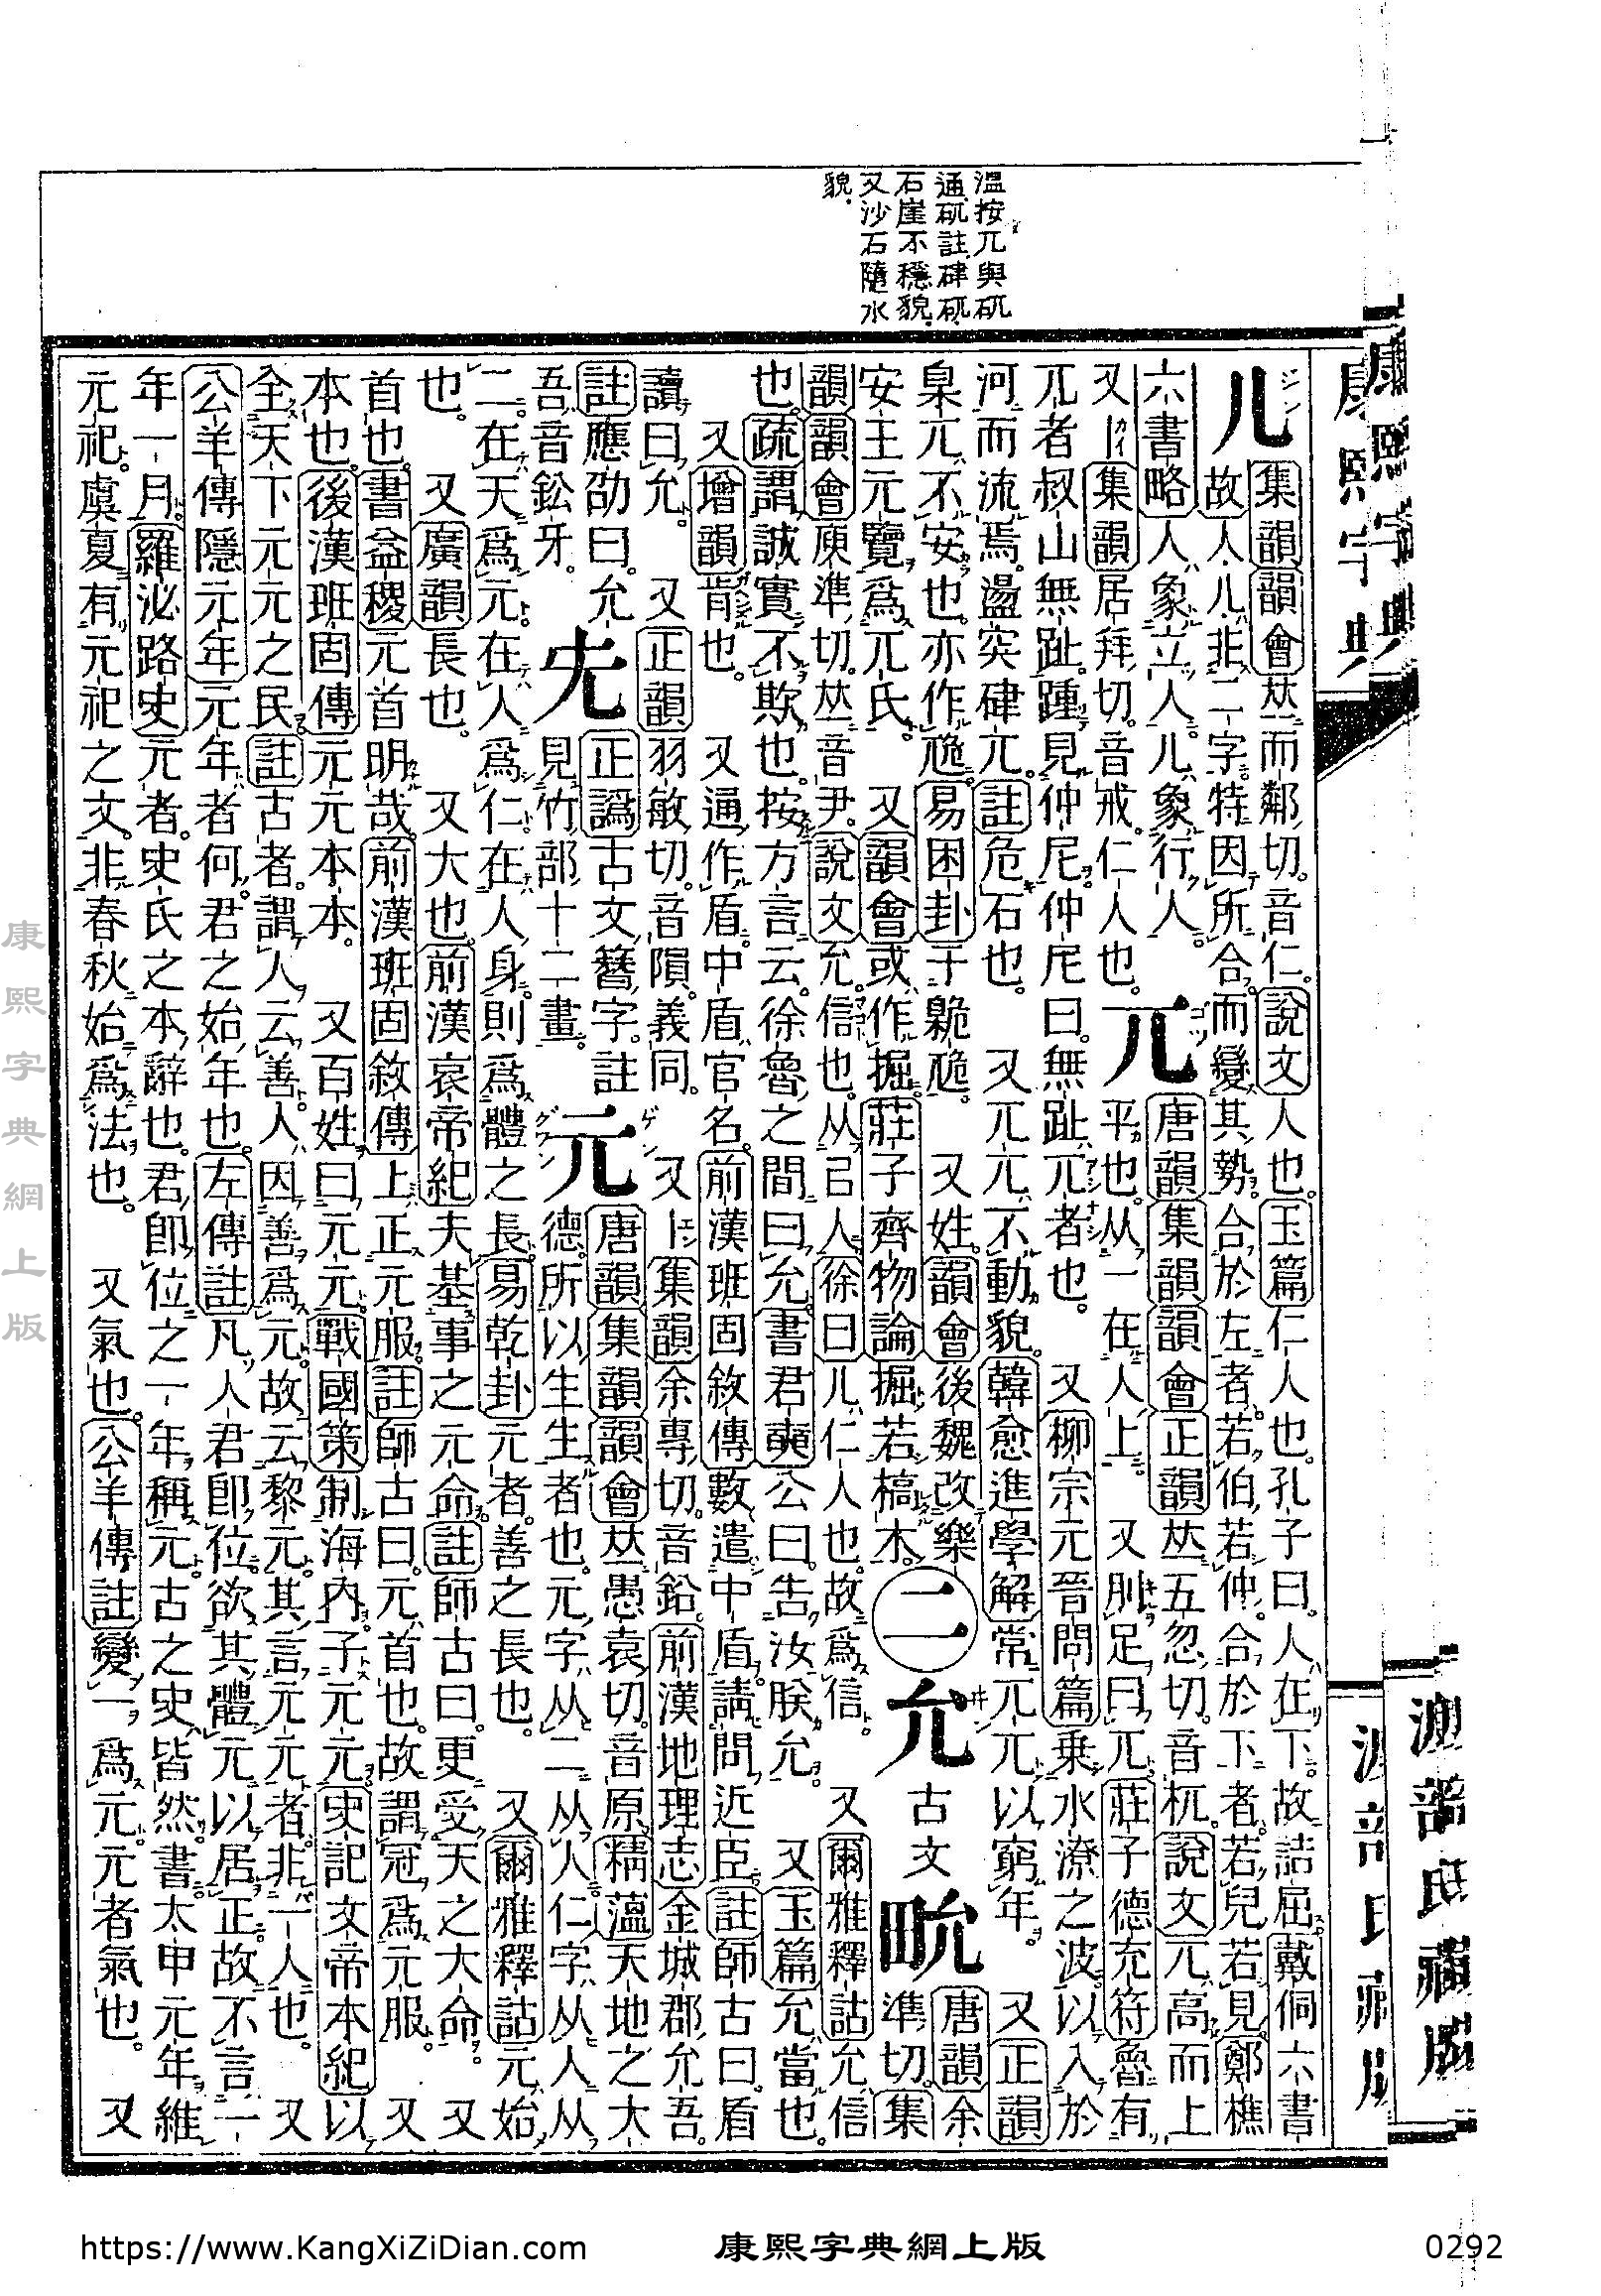 康熙字典
渡部氏藏版
溫按兀與矹
通矹註硉矹
石崖不穩貌
又沙石隨水
貌
儿 集韻韻會𠀤而鄰切音仁。說文人也。玉篇仁人也。孔子曰。人在下。故詰屈。戴侗六書
故人儿非二字。特因所合而變其勢。合於左者。若伯若仲。合於下者。若兒若見。鄭樵
六書略人象立人。儿象行人。
又集韻居拜切。音戒。仁人也。
兀 唐韻集韻韻會正韻𠀤五忽切。音杌。說文兀高而上
平也。从一在人上 又刖足曰兀。莊子德充符魯有
兀者叔山無趾。踵見仲尼。仲尼曰。無趾兀者也。 又柳宗元晉問篇乘水潦之波。以入於
河而流焉。盪突硉兀。註危石也。 又兀兀不動貌。韓愈進學解常兀兀以窮年。 又正韻
臬兀不安也。亦作卼。易困卦于臲卼。 又姓。韻會後魏改樂
安王元覽爲兀氏。 又韻會或作掘。莊子齊物論掘若槁木。
二
允 古文㽙 唐韻余
準切集
韻韻會庾準切。𠀤音尹。說文允信也。从㠯人。徐曰儿仁人也。故爲信。 又爾雅釋詁允信
也。疏謂誠實不欺也。按方言云。徐魯之間曰允。書君奭公曰。告汝朕允。 又玉篇允當也。
又增韻肯也。 又通作盾。中盾官名。前漢班固敘傳數遣中盾請問近臣。註師古曰。盾
讀曰允。 又正韻羽敏切。音隕。義同。 又集韻余專切。音鉛。前漢地理志金城郡允吾。
註應劭曰。允
吾音鈆牙。
兂 正譌古文簪字。註
見竹部十二畫。
元 唐韻集韻韻會𠀤愚袁切。音原。精薀天地之大
德。所以生生者也。元字从二从人。仁字从人从
二。在天爲元。在人爲仁。在人身則爲體之長。易乾卦元者。善之長也。 又爾雅釋詁元始
也。 又廣韻長也。 又大也。前漢哀帝紀夫基事之元命。註師古曰。更受天之大命。 又
首也。書益稷元首明哉。前漢班固敘傳上正元服。註師古曰。元首也。故謂冠爲元服。 又
本也。後漢班固傳元元本本。 又百姓曰元元。戰國策制海內子元元。史記文帝本紀以
全天下元元之民。註古者。謂人云善人。因善爲元。故云黎元。其言元元者。非一人也。 又
公羊傳隱元年元年者何。君之始年也。左傳註凡人君卽位。欲其體元以居正。故不言一
年一月。羅泌路史元者。史氏之本辭也。君卽位之一年稱元。古之史皆然。書太甲元年。維
元祀。虞夏有元祀之文。非春秋始爲法也。 又氣也。公羊傳註變一爲元。元者氣也。 又
康熙字典網上版
https://www.KangXiZiDian.com
康熙字典網上版
0292